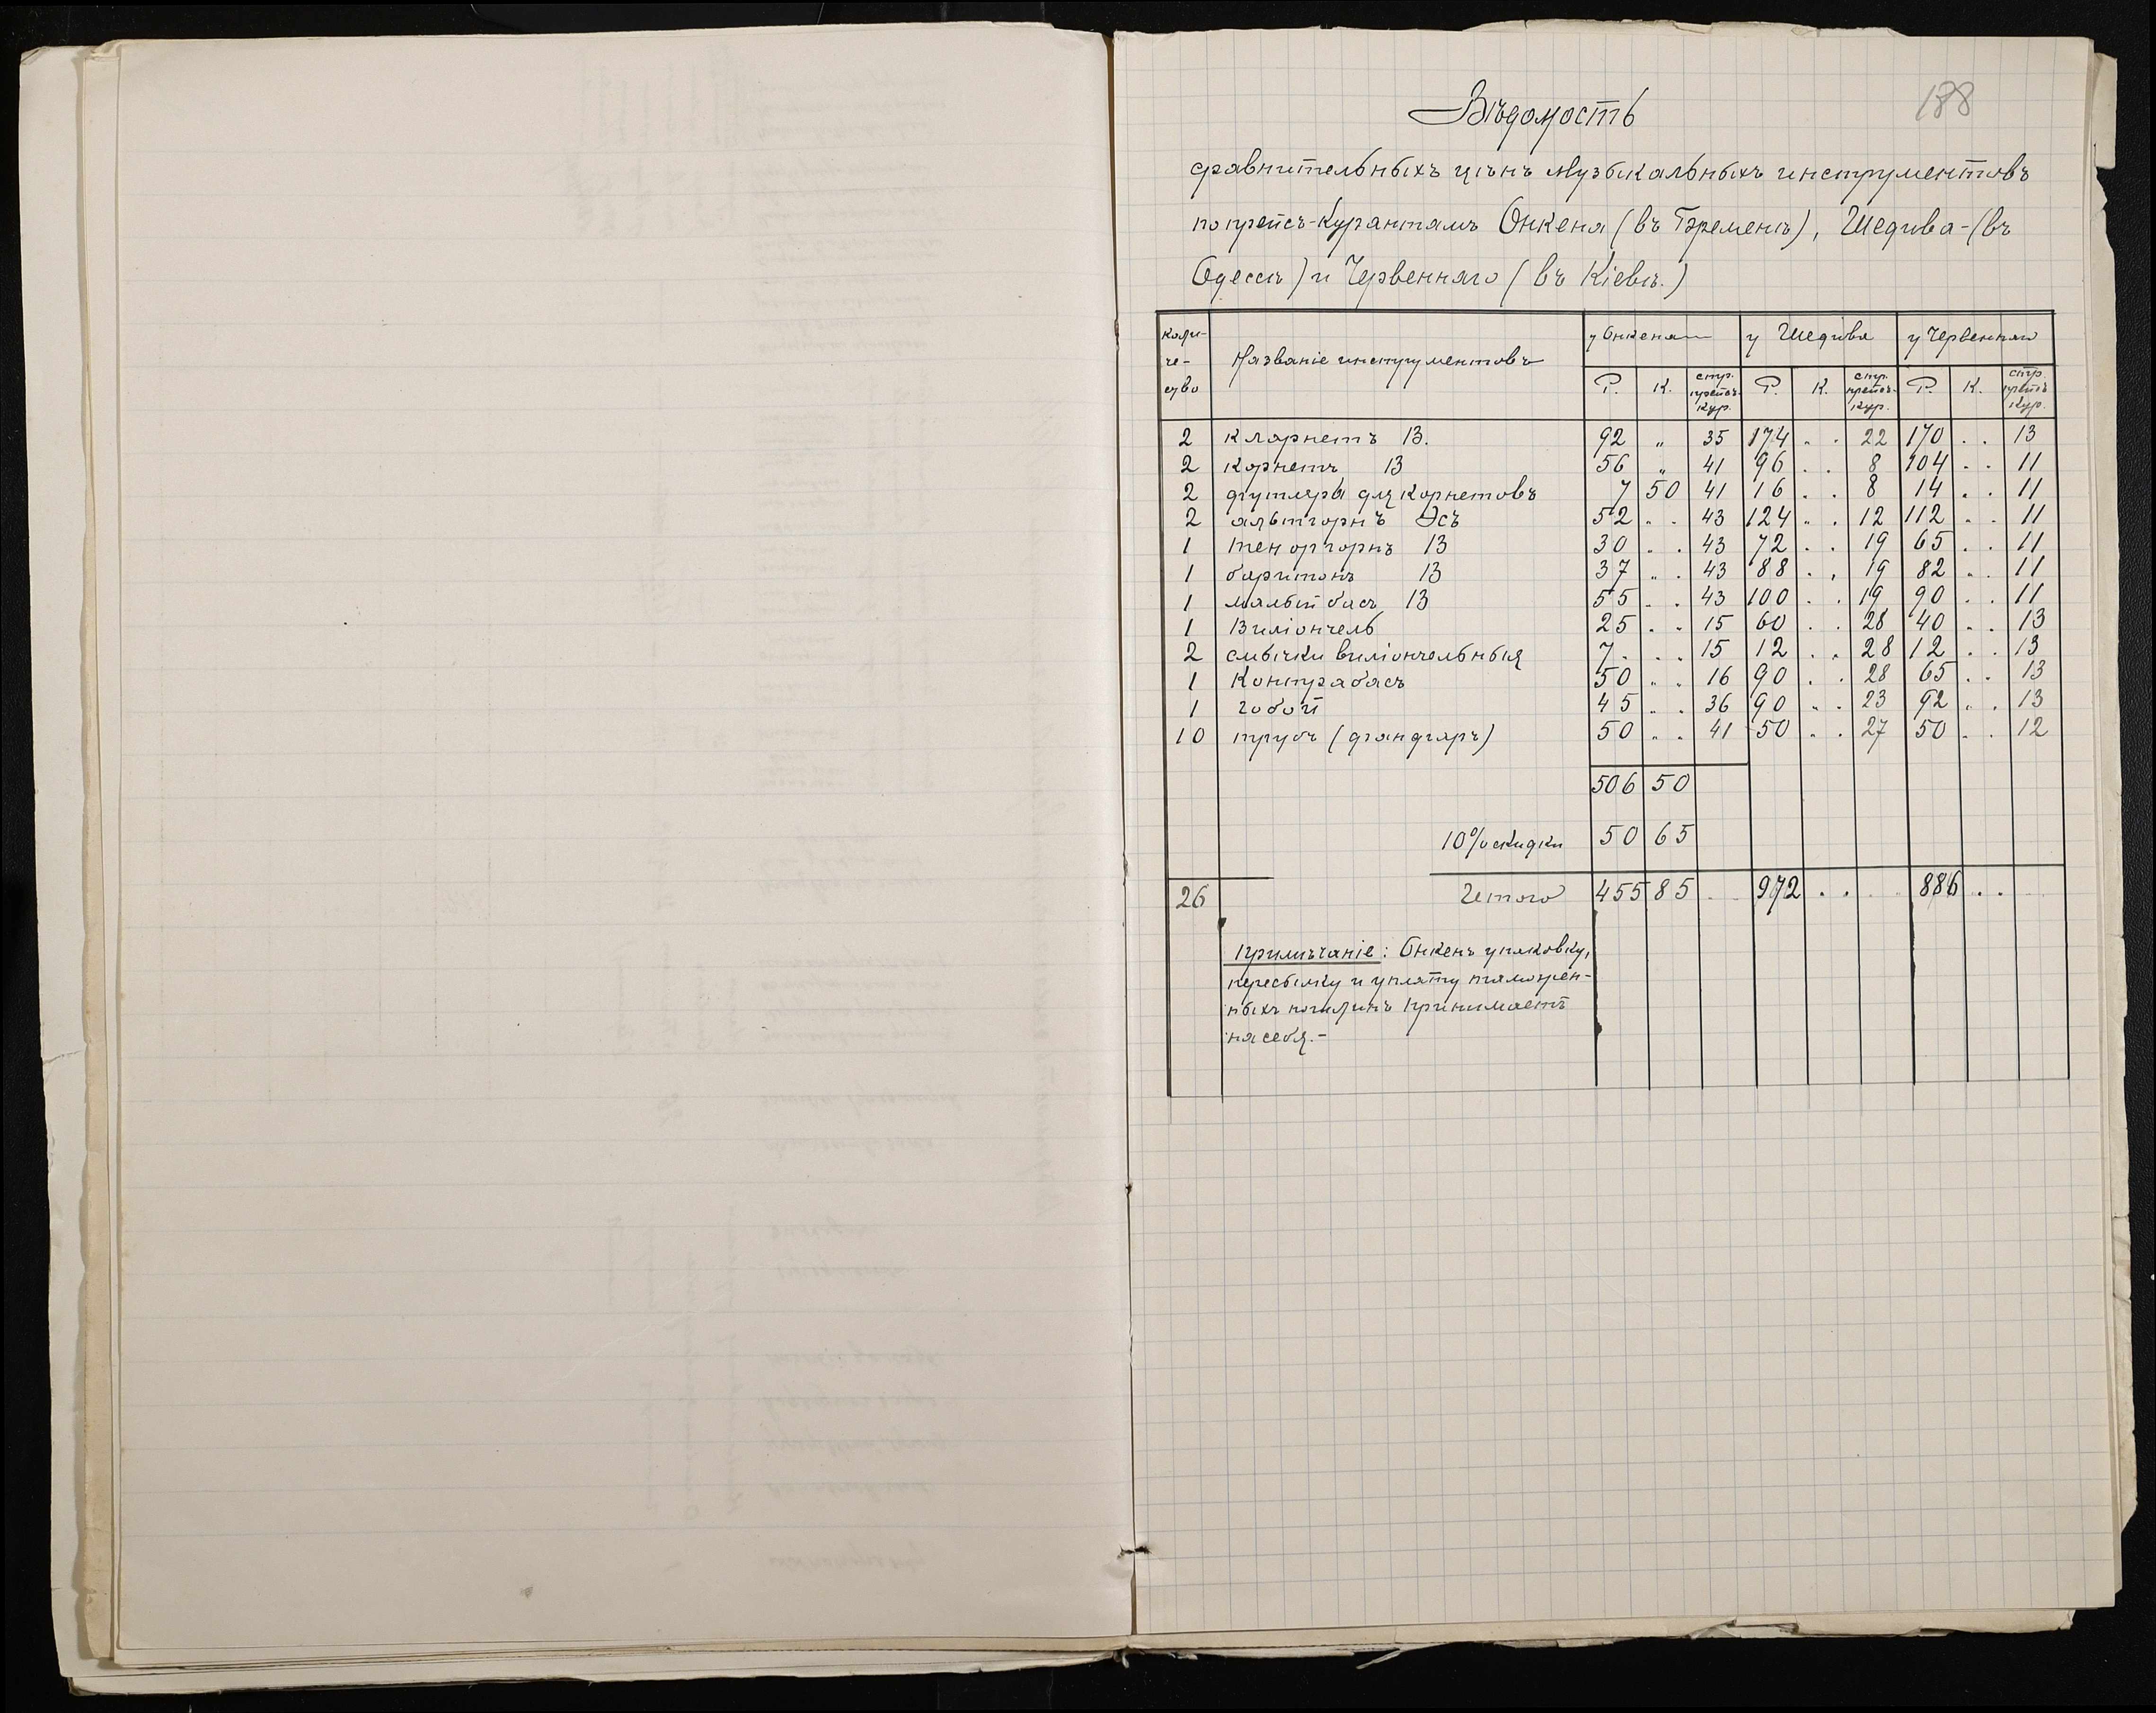 188
Вѣдомость
сравнительныхъ цѣнъ музыкальныхъ инструментовъ
по прейсъ-курантамъ Онкена (въ Бременѣ), Шедива-(въ
Одессѣ) и Червеннаго (въ Кіевѣ.)
Коли-че-ство Названіе инструментовъ у Онкена у Шедива у Червеннаго
Р. К. стр. прейсъ-кур. Р. К. стр. прейсъ-кур. Р. К. стр. прейсъ кур.
2 кларнетъ В. 92 „ 35 174 . . 22 170 . . 13
2 корнетъ В 56 „ 41 96 . . 8 104 . . 11
2 футляры для корнетовъ 7 50 41 16 . . 8 14 . . 11
2 альтгорнъ Эсъ 52 . . 43 124 . . 12 112 . . 11
1 теноргорнъ В 30 . . 43 72 . . 19 65 . . 11
1 баритонъ В 37 . . 43 88 . . 19 82 . . 11
1 малый басъ В 55 . . 43 100 . . 19 90 . . 11
1 Виліончель 25 . . 15 60 . . 28 40 . . 13
2 смычки виліончельныя 7 . . . 15 12 . . 28 12 . . 13
1 Контрабасъ 50 . . 16 90 . . 28 65 . . 13
1 гобой 45 . . 36 90 . . 23 92 . . 13
10 трубъ (фанфаръ) 50 . . 41 50 . . 27 50 . . 12
506 50
10% скидки 50 65
26 Итого 455 85 972 . . 886 . .
Примѣчаніе: Онкенъ упаковку,
пересылку и уплату таможен-
ныхъ пошлинъ принимаетъ
на себя.-